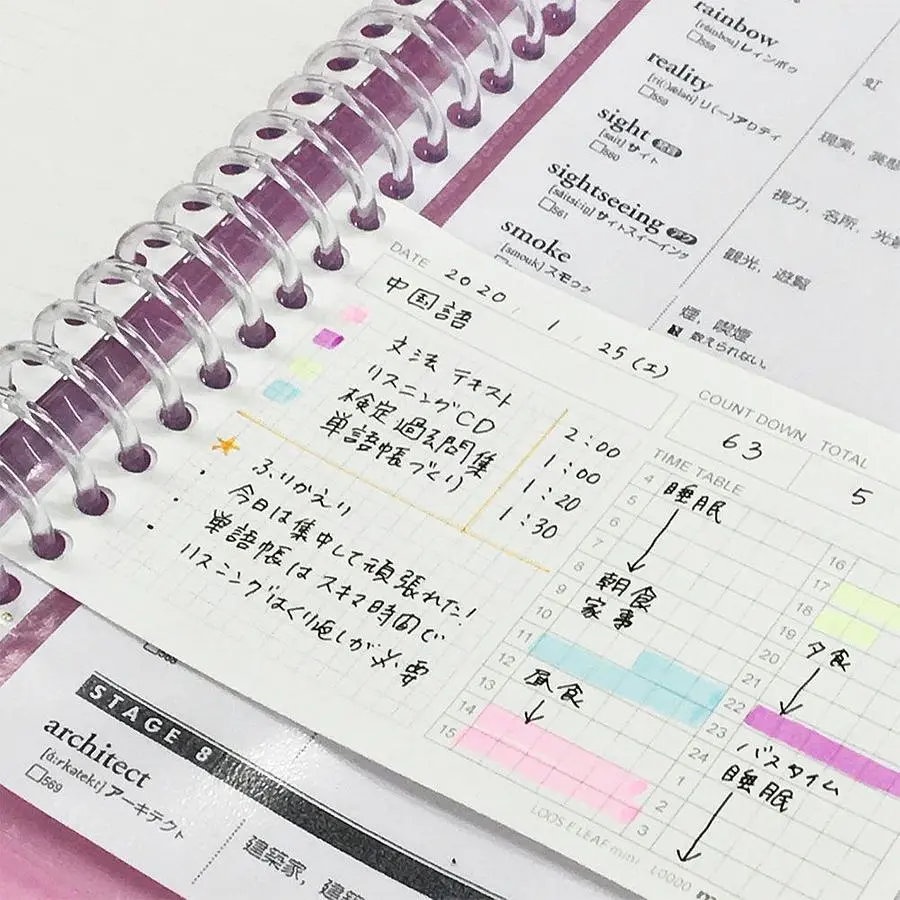 rainbow
[réinbou] レィンボゥ
558
虹
reality
559
現実,
sight
[sait] サイト
560
視力, 名所,
sightseeing
[sáitsìːiŋ] サイトスィーイング
561
観光, 遊覧
smoke
[smouk] スモゥク
煙, 喫煙
数えられない。
DATE 2020 . 1 . 25 (土)
中国語
文法 テキスト 2:00
リスニングCD 1:00
検定過去問集 1:20
単語帳づくり 1:30
ふりかえり
・今日は集中して頑張れた!
・単語帳はスキマ時間で
・リスニングはくり返しが必要
COUNT DOWN
63
TOTAL
5
TIME TABLE
4 睡眠
5
6
7
8 朝食
9 家事
10
11
12 昼食
13
14
15
16
17
18
19 夕食
20
21
22
23 バスタイム
24 睡眠
1
2
3
LOOSE LEAF mini L0000
STAGE 8
architect
[ɑ́ːrkətekt] アーキテクト
569
建築家,